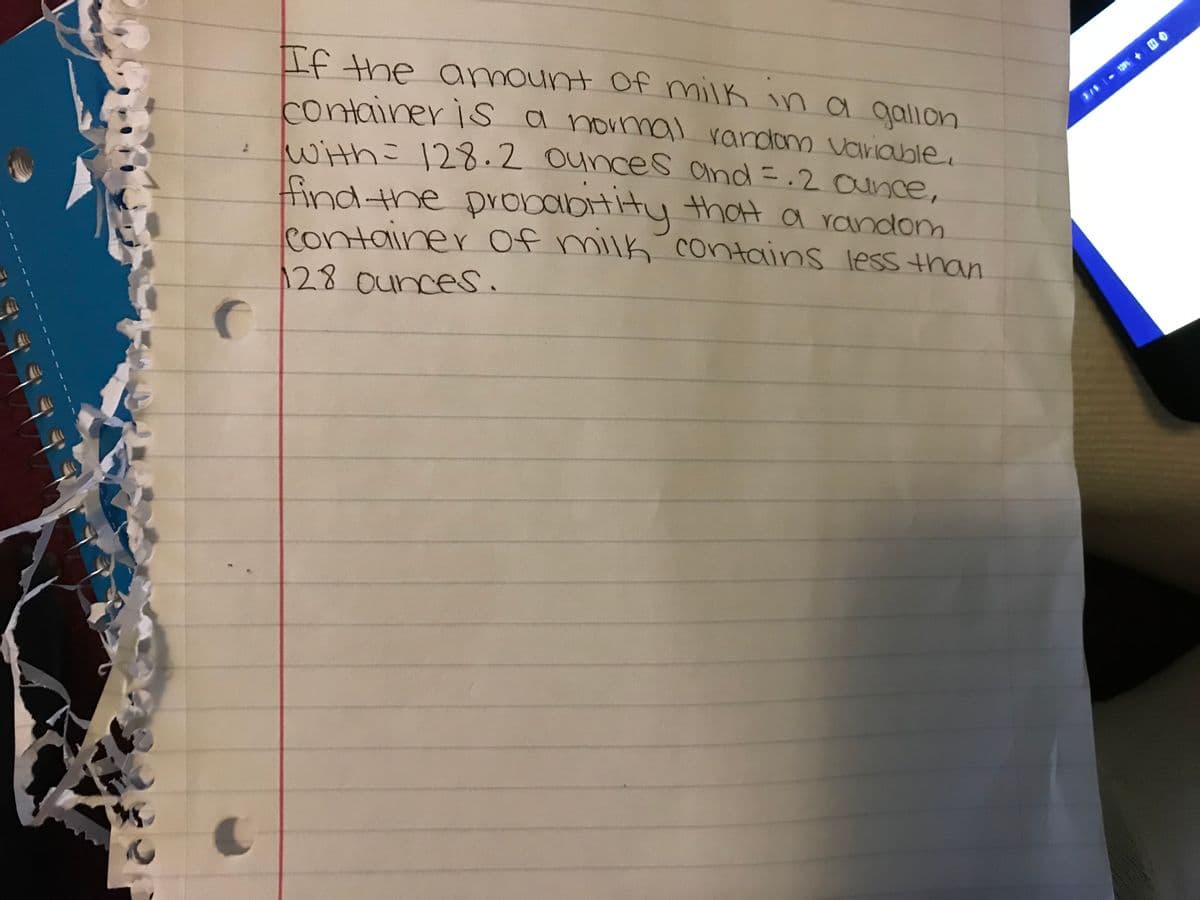 If the amount of milk in a gallon
container is a normal random variable,
with = 128.2 ounces and = .2 ounce,
find the probabitity that a random
container of milk contains less than
128 ounces.